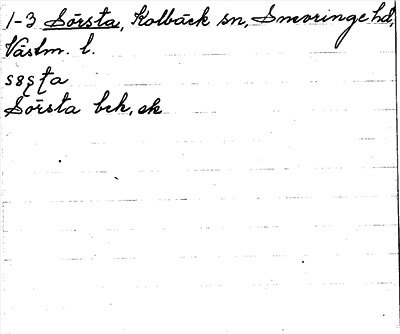 1-3 Sörsta, Kolbäck sn, Snevringe hd,
Västm. l.
Sörsta beh, ek